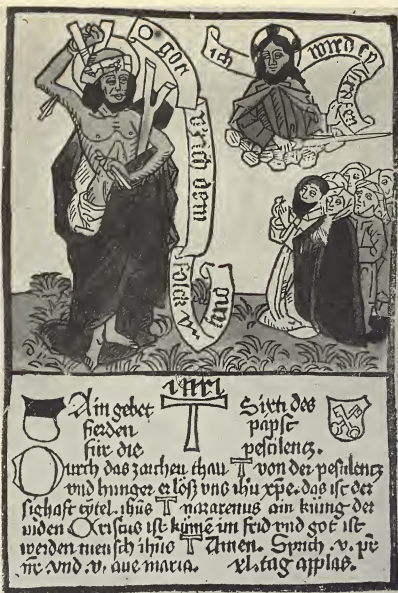 O got
ich
wird ey
inri
Ain gebet Sixti des
fierden papst
für die pestilentz.
Durch das zaichen thau T von der pestilentz
vnd hunger erlöß vns ihū xpe. das ist der
sighaft tytel. ihūs T nazarenus ain küng der
iuden Cristus ist kumē im frid vnd got ist
werden mensch ihūs T Amen. Sprich .v. pr̄
nr̄ vnd .v. aue maria. xl. tag applas.